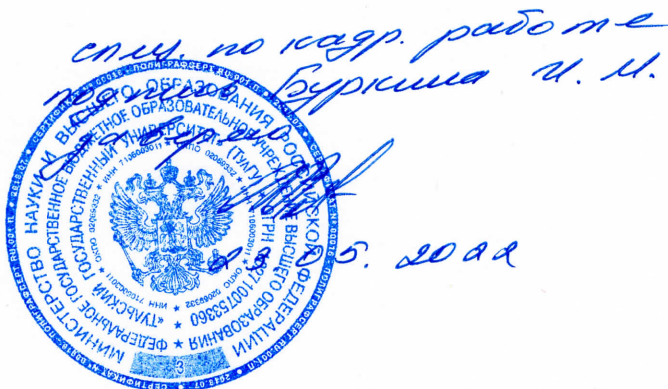 спец. по кадр. работе
подпись Буркина И. М.
заверяю
05. 2022
МИНИСТЕРСТВО НАУКИ И ВЫСШЕГО ОБРАЗОВАНИЯ РОССИЙСКОЙ ФЕДЕРАЦИИ
ФЕДЕРАЛЬНОЕ ГОСУДАРСТВЕННОЕ БЮДЖЕТНОЕ ОБРАЗОВАТЕЛЬНОЕ УЧРЕЖДЕНИЕ ВЫСШЕГО ОБРАЗОВАНИЯ
"ТУЛЬСКИЙ ГОСУДАРСТВЕННЫЙ УНИВЕРСИТЕТ" (ТУЛГУ)
ОКПО 02069332 * ИНН 7106003011